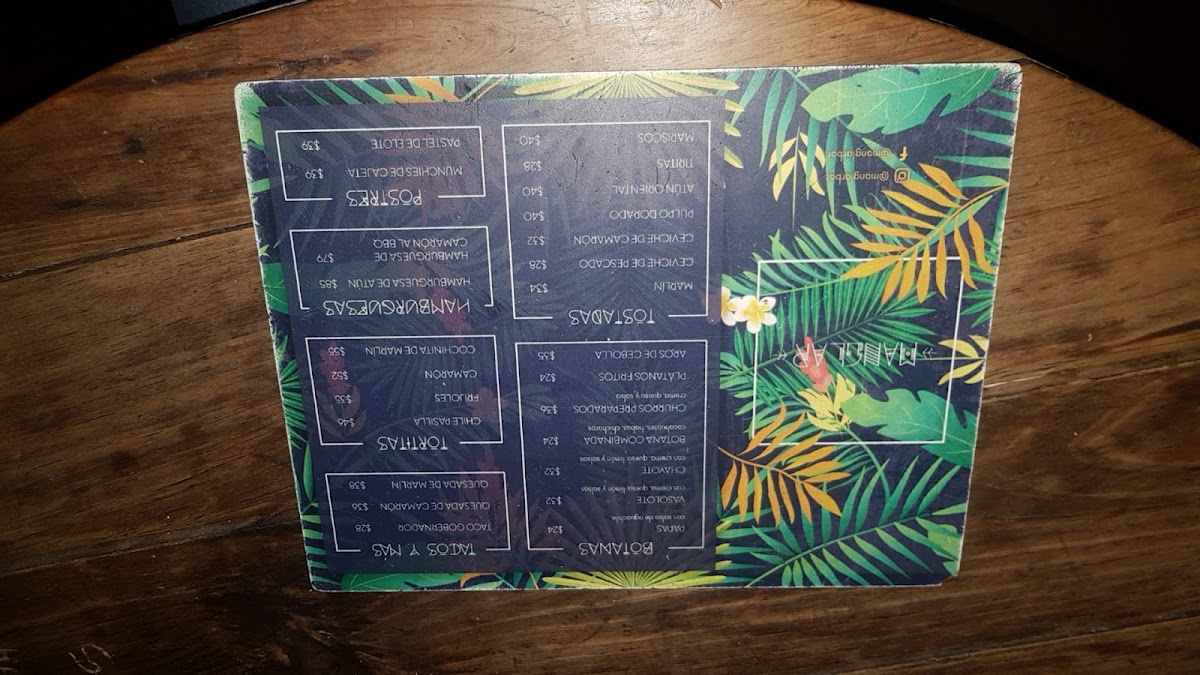 »MANGLAR«
@manglarbar
@manglarbar
BOTANAS
PAPAS $24
con salsa de aguachile
VASOLOTE $32
con crema, queso, limón y salsas
CHAYOTE $32
con crema, queso, limón y salsas
BOTANA COMBINADA $24
cacahuates, habas, chicharos
CHURROS PREPARADOS $36
crema, queso y salsa
PLÁTANOS FRITOS $24
AROS DE CEBOLLA $35
TOSTADAS
MARLÍN $34
CEVICHE DE PESCADO $28
CEVICHE DE CAMARÓN $32
PULPO DORADO $40
ATÚN ORIENTAL $40
TIRITAS $28
MARISCOS $40
TACOS Y MÁS
TACO GOBERNADOR $28
QUESADA DE CAMARÓN $36
QUESADA DE MARLÍN $38
TORTITAS
CHILE PASILLA $46
FRIJOLES $35
CAMARÓN $52
COCHINITA DE MARLÍN $55
HAMBURGUESAS
HAMBURGUESA DE ATÚN $85
HAMBURGUESA DE
CAMARÓN AL BBQ $79
POSTRES
MUNCHIES DE CAJETA $39
PASTEL DE ELOTE $39